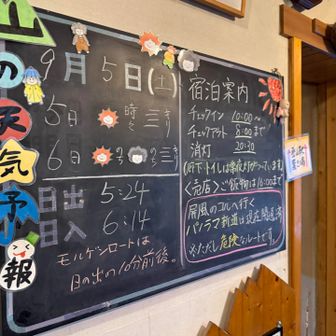 山の天気予報
9月5日(土)
5日 時々 ミ キリ
6日 ミ キリ
日出 5:24
日入 6:14
モルゲンロートは
日の出の10分前後。
宿泊案内
チェックイン 10:00~
チェックアウト 8:00まで
消灯 20:30
売店
ご飯
は16:00まで
屏風のコルへ行く
パノラマ新道は現在
※ただし危険なルートです。